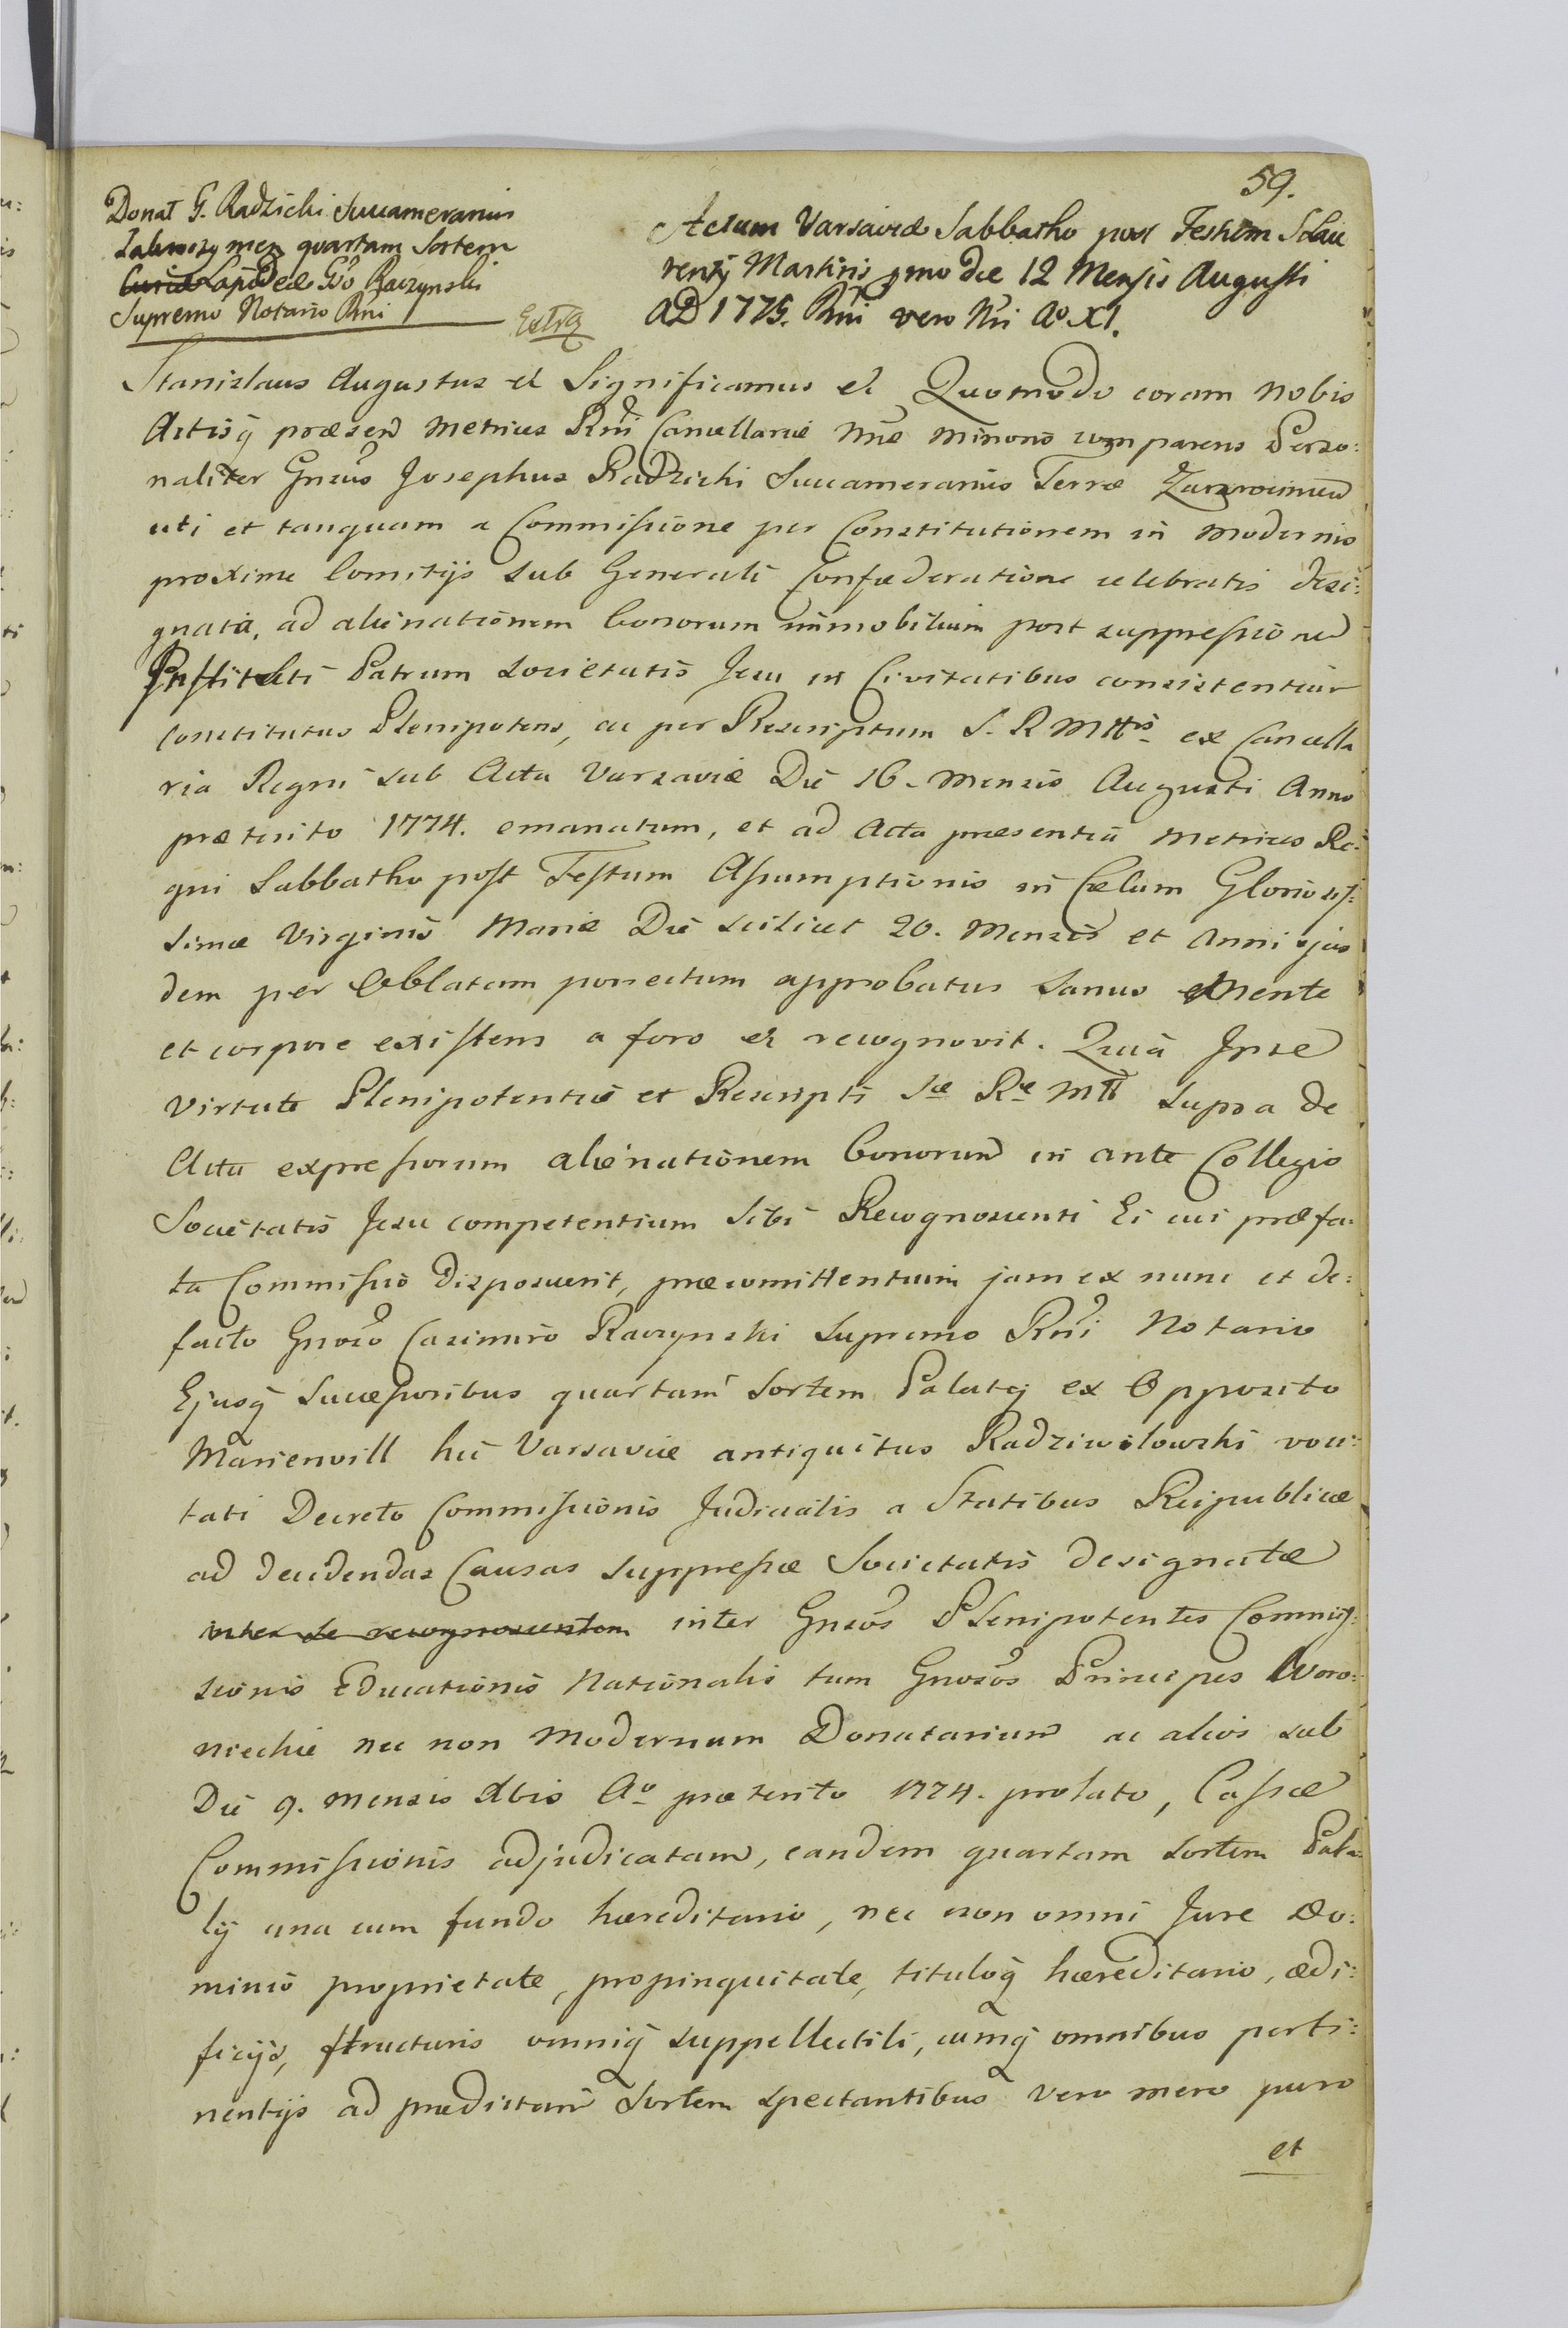 59.
Donat G. Radzicki Succamerarius
Zakroczymen quartam Sortem
Curiæ Lapideæ Gso Raczynski
Supremo Notario Rni
Extrq
Actum Varsaviæ Sabbatho post Festum S Lau
rentij Martiris pmo die 12 Mensis Augusti
AD 1775. Rni vero Nri Aº XI.
Stanislaus Augustus et Significamus et Quomodo coram nobis
Actisq præsen Metrices Rni Cancellariæ Nræ Minoris comparens Perso:
naliter Gnsus Josephus Radzicki Succamerarius Terræ Zacrocimen
uti et tanquam a Commissione per Constitutionem in modernis
proxime Comitijs sub Generali Confæderatione celebratis desi:
gnata, ad alienationem bonorum immobilium post suppressionem
Instituti Patrum Societatis Jesu in Civitatibus consistentium
constitutus Plenipotens, ac per Rescriptum S. R. Mttis ex Cancella
ria Regni sub Actu Varsaviæ Die 16. Mensis Augusti Anno
præterito 1774. emanatum, et ad Acta præsentiu Metrices Re:
gni Sabbatho post Festum Assumptionis in Cælum Gloriosis:
simæ Virginis Mariæ Die scilicet 20. Mensis et Anni ejus
dem per Oblatam porrectum approbatus sanus mente
et corpore existens a foro et recognovit. Quia Ipse
Virtute Plenipotentiæ et Rescripti Sæ Ræ Mtt supra de
Actu expressorum alienationem bonorum in ante Collegio
Societatis Jesu competentium sibi Recognoscenti Ei cui præfa:
ta Commissio disposuerit, præcomittentium jam ex nunc et de:
facto Gnoso Casimiro Raczynski Supremo Rni Notario
Ejusq Successoribus quartam Sortem Palatij ex Opposito
Marienvill hic Varsaviæ antiquitus Radziwilowski voci:
tati Decreto Commissionis Judicialis a Statibus Reipublicæ
ad decidendas Causas suppressæ Societatis designatæ
inter se recognoscentem inter Gnsos Plenipotentes Commis:
sionis Educationis Nationalis tum Gnosos Principes Woro:
niechie nec non Modernum Donatarium ac alios sub
Die 9. Mensis Xbris Aº præterito 1774. prolato, Cassæ
Commissionis adjudicatam, eandem quartam Sortem Pala:
tij una cum fundo hæreditario, nec non omni Jure Do:
minio proprietate, propinquitate, tituloq hæreditario, ædi:
ficijs, structuris omniq suppellectili, cumq omnibus perti:
nentijs ad prædictam Sortem spectantibus vero mero puro
et